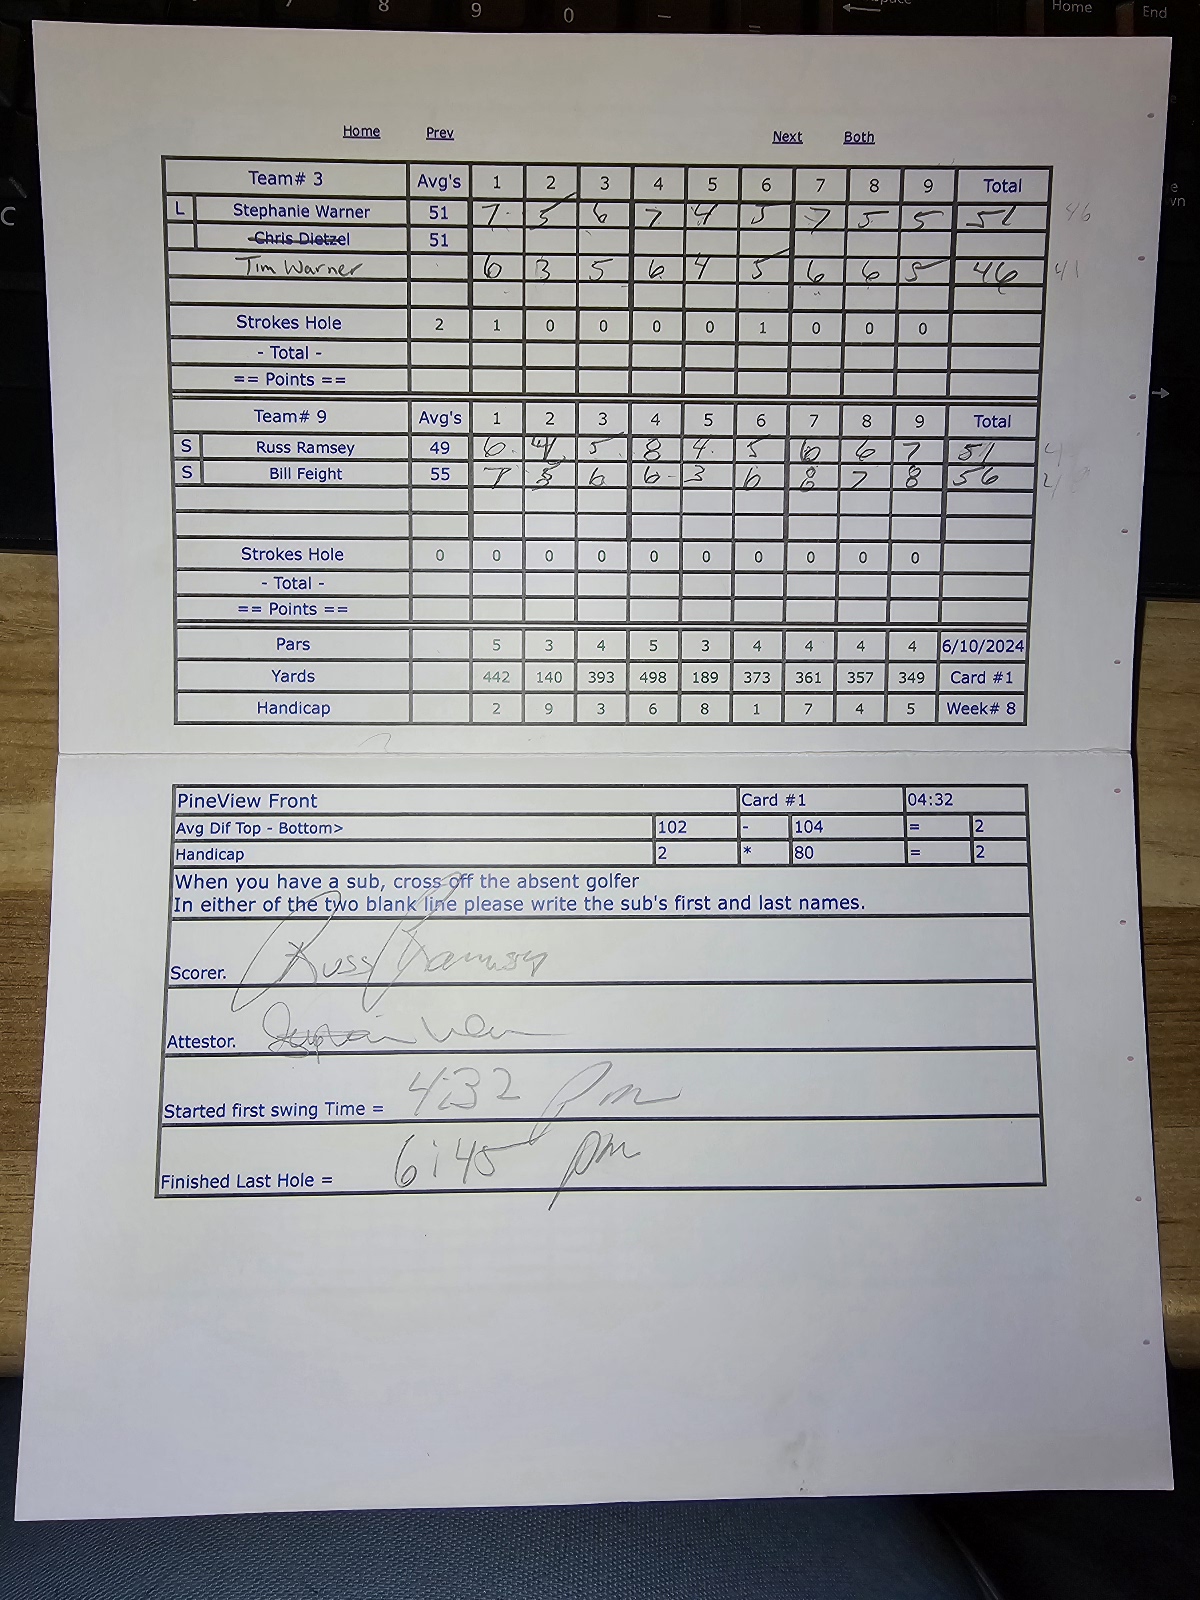 8 9 0 - Home End
=
C
Home Prev Next Both
Team# 3 Avg's 1 2 3 4 5 6 7 8 9 Total
L Stephanie Warner 51 7 5 6 7 4 5 7 5 5 51 46
Chris Dietzel 51
Tim Warner 6 3 5 6 4 5 6 6 5 46 41
Strokes Hole 2 1 0 0 0 0 1 0 0 0
- Total -
== Points ==
Team# 9 Avg's 1 2 3 4 5 6 7 8 9 Total
S Russ Ramsey 49 6 4 5 8 4 5 6 6 7 51
S Bill Feight 55 7 5 6 6 3 6 8 7 8 56
Strokes Hole 0 0 0 0 0 0 0 0 0 0
- Total -
== Points ==
Pars 5 3 4 5 3 4 4 4 4 6/10/2024
Yards 442 140 393 498 189 373 361 357 349 Card #1
Handicap 2 9 3 6 8 1 7 4 5 Week# 8
PineView Front Card #1 04:32
Avg Dif Top - Bottom> 102 - 104 = 2
Handicap 2 * 80 = 2
When you have a sub, cross off the absent golfer
In either of the two blank line please write the sub's first and last names.
Scorer. Russ Ramsey
Attestor.
Started first swing Time = 4:32 pm
Finished Last Hole = 6:45 pm